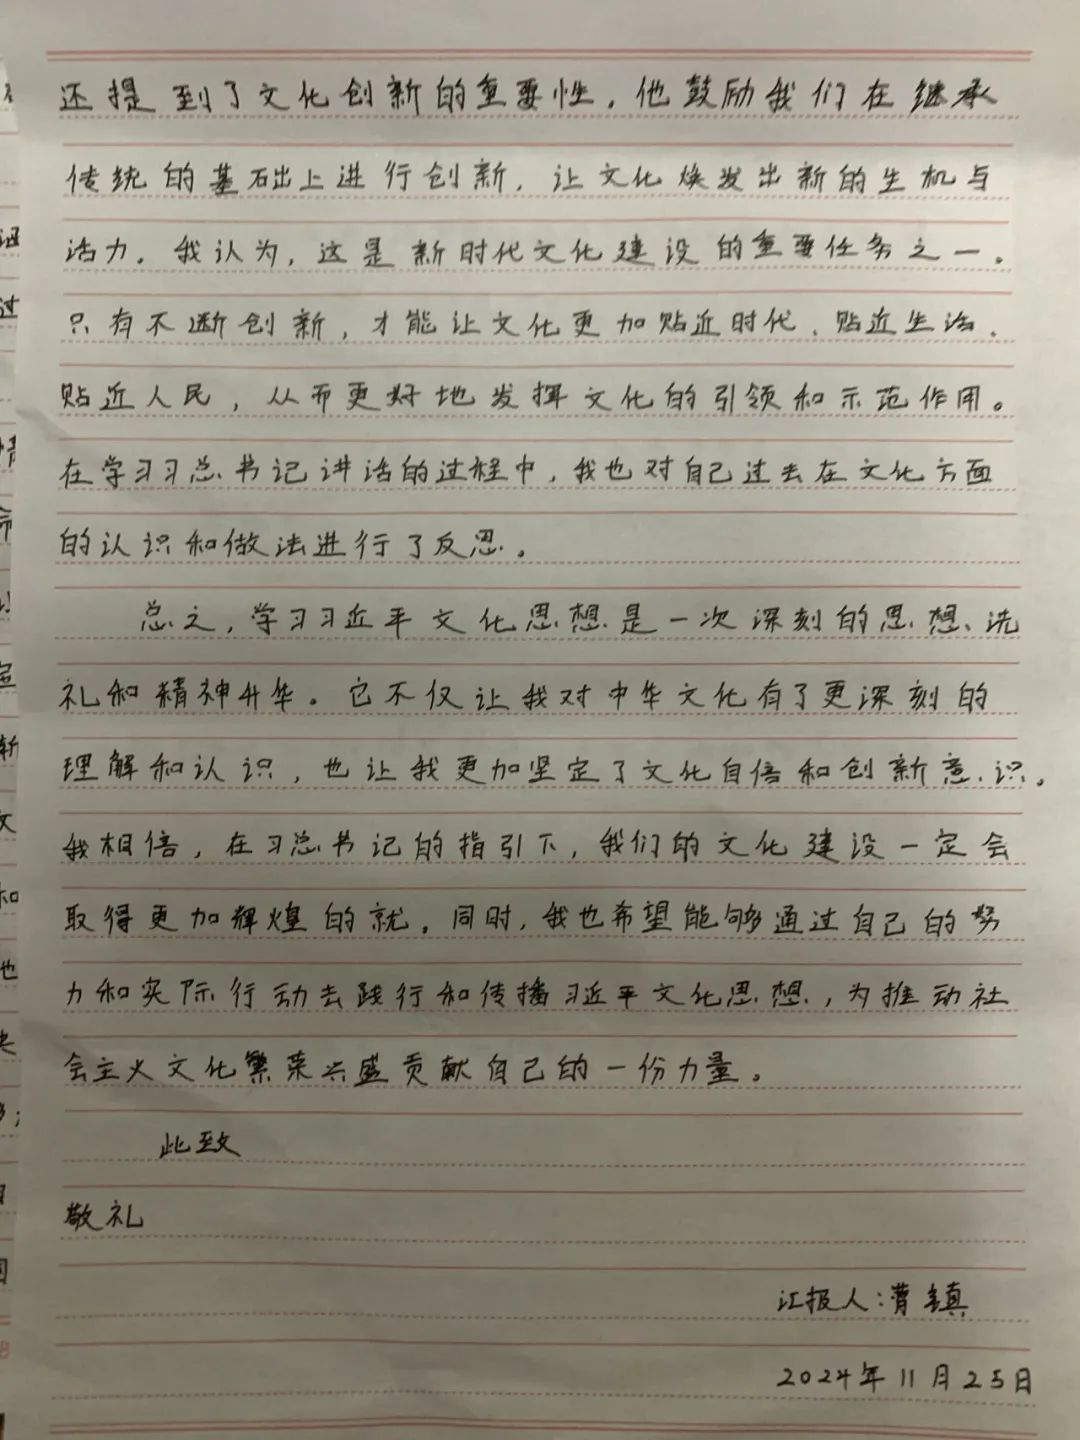 还提到了文化创新的重要性，他鼓励我们在继承
传统的基础上进行创新，让文化焕发出新的生机与
活力。我认为，这是新时代文化建设的重要任务之一。
只有不断创新，才能让文化更加贴近时代、贴近生活、
贴近人民，从而更好地发挥文化的引领和示范作用。
在学习习总书记讲话的过程中，我也对自己过去在文化方面
的认识和做法进行了反思。
总之，学习习近平文化思想是一次深刻的思想洗
礼和精神升华。它不仅让我对中华文化有了更深刻的
理解和认识，也让我更加坚定了文化自信和创新意识。
我相信，在习总书记的指引下，我们的文化建设一定会
取得更加辉煌的就。同时，我也希望能够通过自己的努
力和实际行动去践行和传播习近平文化思想，为推动社
会主义文化繁荣兴盛贡献自己的一份力量。
此致
敬礼
汇报人：曹镇
2024年11月25日